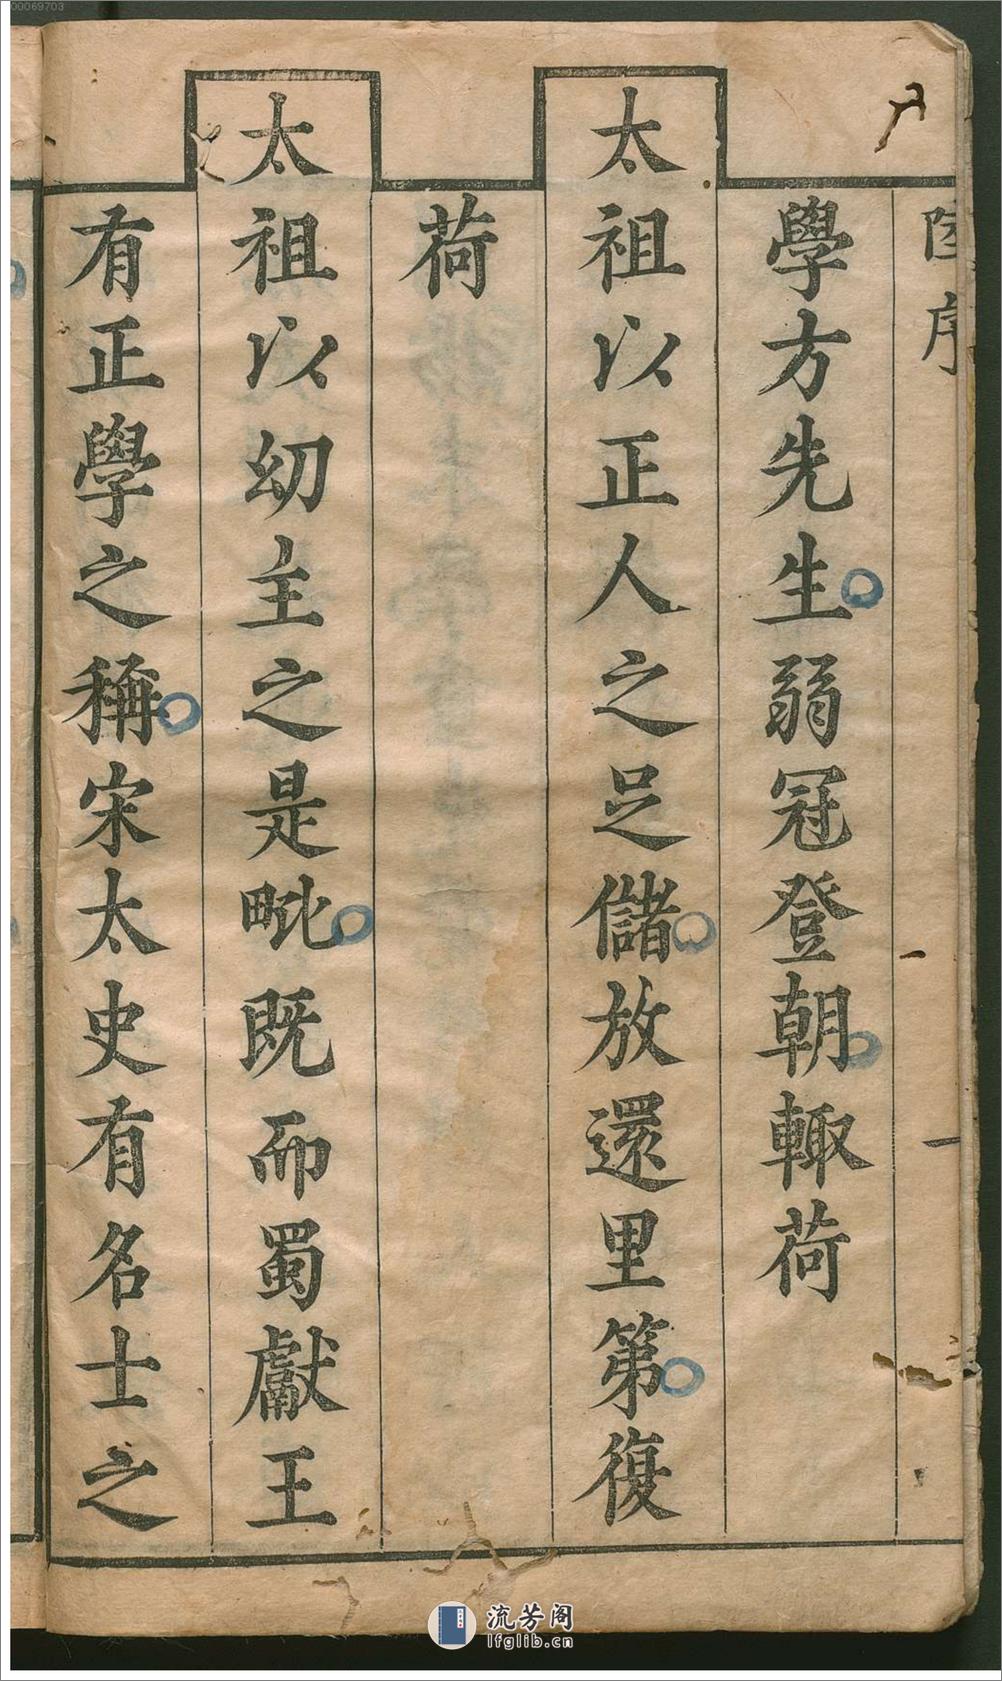 00069703
序
一
學方先生弱冠登朝輙荷
太祖以正人之足儲放還里第復
荷
太祖以幼主之是毗既而蜀獻王
有正學之稱宋太史有名士之
流芳阁
lfglib.cn